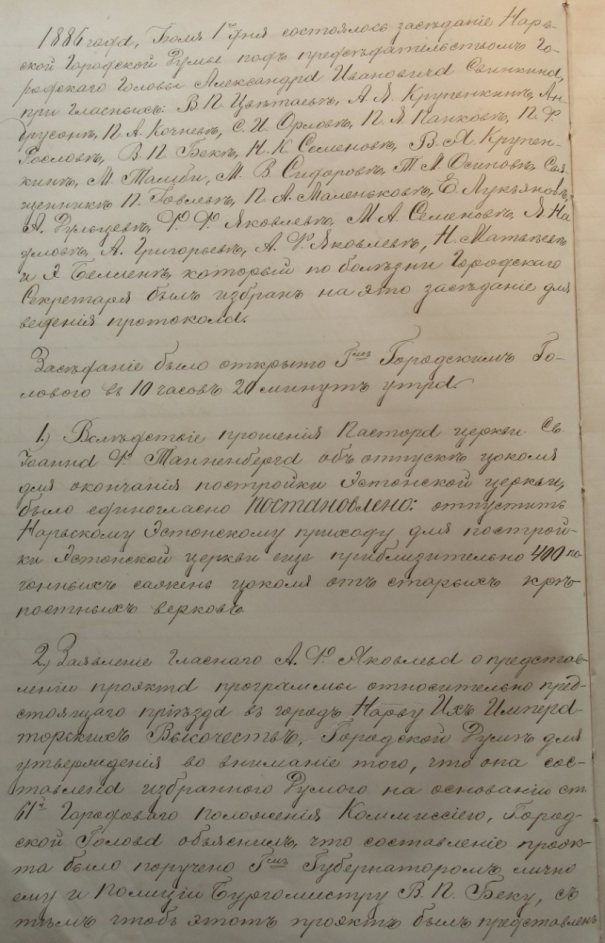 1886 года, Іюля 1го дня состоялось засѣданіе Нарв-
ской Городской Думы подъ предсѣдательствомъ Го-
родскаго Головы Александра Ивановича Свинкина,
при гласныхъ: В. П. Цвѣтаевѣ, А. Я. Крупенкинѣ, Ан-
друсонѣ, П. А. Кочневѣ, С. И. Орловѣ, П. Я. Панковѣ, П. Ф.
В. П. Бекѣ, Н. К. Семеновѣ, В. А. Крупен-
кинѣ, М. М. В. Сидоровѣ, Т. М. Осиповѣ, Свя-
щенникѣ П. П. А. Маленьковѣ, Е. Лукьяновѣ,
А. Ф. Ф. Яковлевѣ, М. А. Семеновѣ, Я. На-
А. Григорьевѣ, А. Ф. Яковлевѣ, Н. Матвѣевѣ
и Э. который по болѣзни Городскаго
Секретаря былъ избранъ на это засѣданіе для
веденія протокола.
Засѣданіе было открыто Гмъ Городскимъ Го-
ловою въ 10 часовъ 20 минутъ утра.
1) Вслѣдствіе прошенія Пастора церкви Св
Іоанна Ф. Танненберга объ отпускѣ цоколя
для окончанія постройки Эстонской церкви,
было единогласно постановлено: отпустить
Нарвскому Эстонскому приходу для построй-
ки Эстонской церкви еще приблизительно 400 по-
гонныхъ саженъ цоколя отъ старыхъ крѣ-
постныхъ верковъ.
2) Заявленіе гласнаго А. Ф. Яковлева о представ-
леніи проэкта программы относительно пред-
стоящаго пріѣзда въ городъ Нарву Ихъ Импера-
торскихъ Высочествъ, Городской Думѣ для
утвержденія во вниманіе того, что она сос-
тавлена избранною Думою на основаніи ст.
61й Городоваго положенія Коммиссіею, Город-
ской Голова объяснилъ, что составленіе проэк-
та было поручено Гмъ Губернаторомъ лично
ему и Полиціи Бургомистру В. П. Беку, съ
тѣмъ чтобъ этотъ проэктъ былъ представленъ